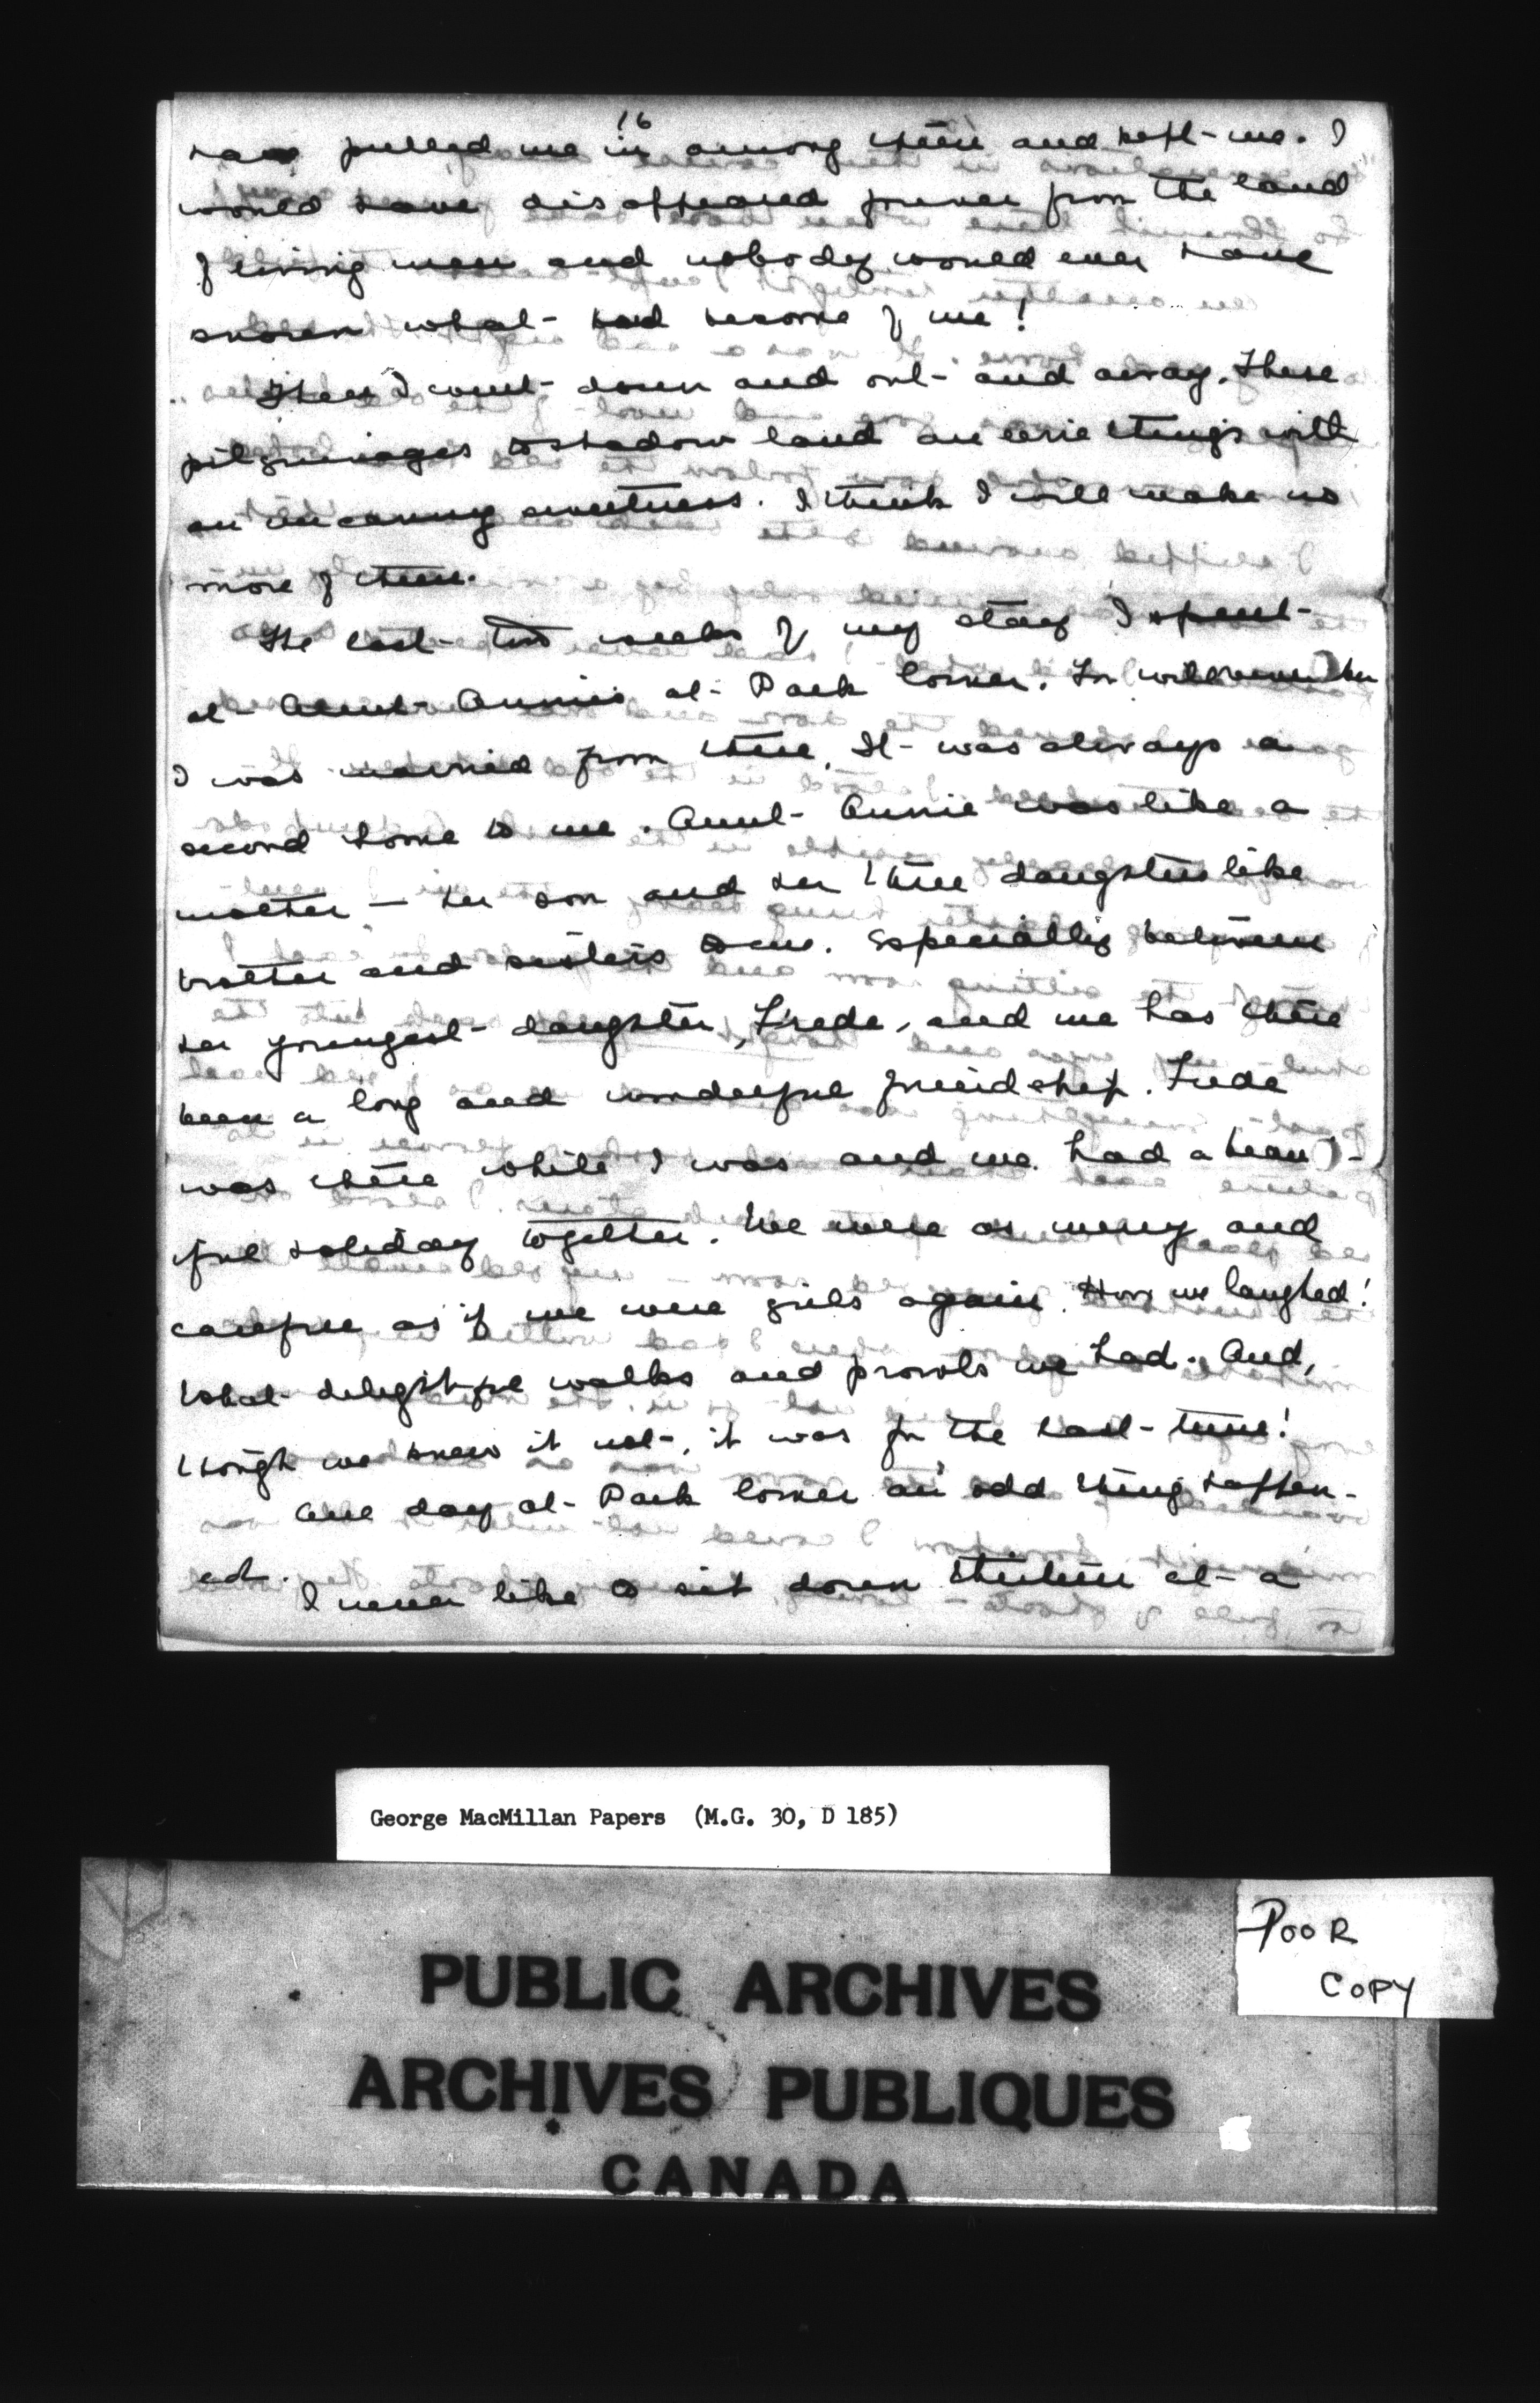 16
have pulled me in among them and kept me. I
would have disappeared forever from the land
of living men and nobody would ever have
known what had become of me!
Then I went down and out and away. These
pilgrimages to shadow land are eerie things with
an uncanny sweetness. I think I will make no
more of them.
The last two weeks of my stay I spent
at Aunt Annie's at Park Corner. You will remember
I was married from there. It was always a
second home to me. Aunt Annie was like a
mother — her son and her three daughters like
brother and sisters to me. Especially between
her youngest daughter, Frede, and me has there
been a long and wonderful friendship. Frede
was there while I was and we had a beaut-
iful holiday together. We were as merry and
carefree as if we were girls again. How we laughed!
What delightful walks and prowls we had. And,
though we knew it not, it was for the last time!
One day at Park Corner an odd thing happen-
ed.
I never like to sit down thirteen at a
George MacMillan Papers (M.G. 30, D 185)
POOR
COPY
PUBLIC ARCHIVES
ARCHIVES PUBLIQUES
CANADA